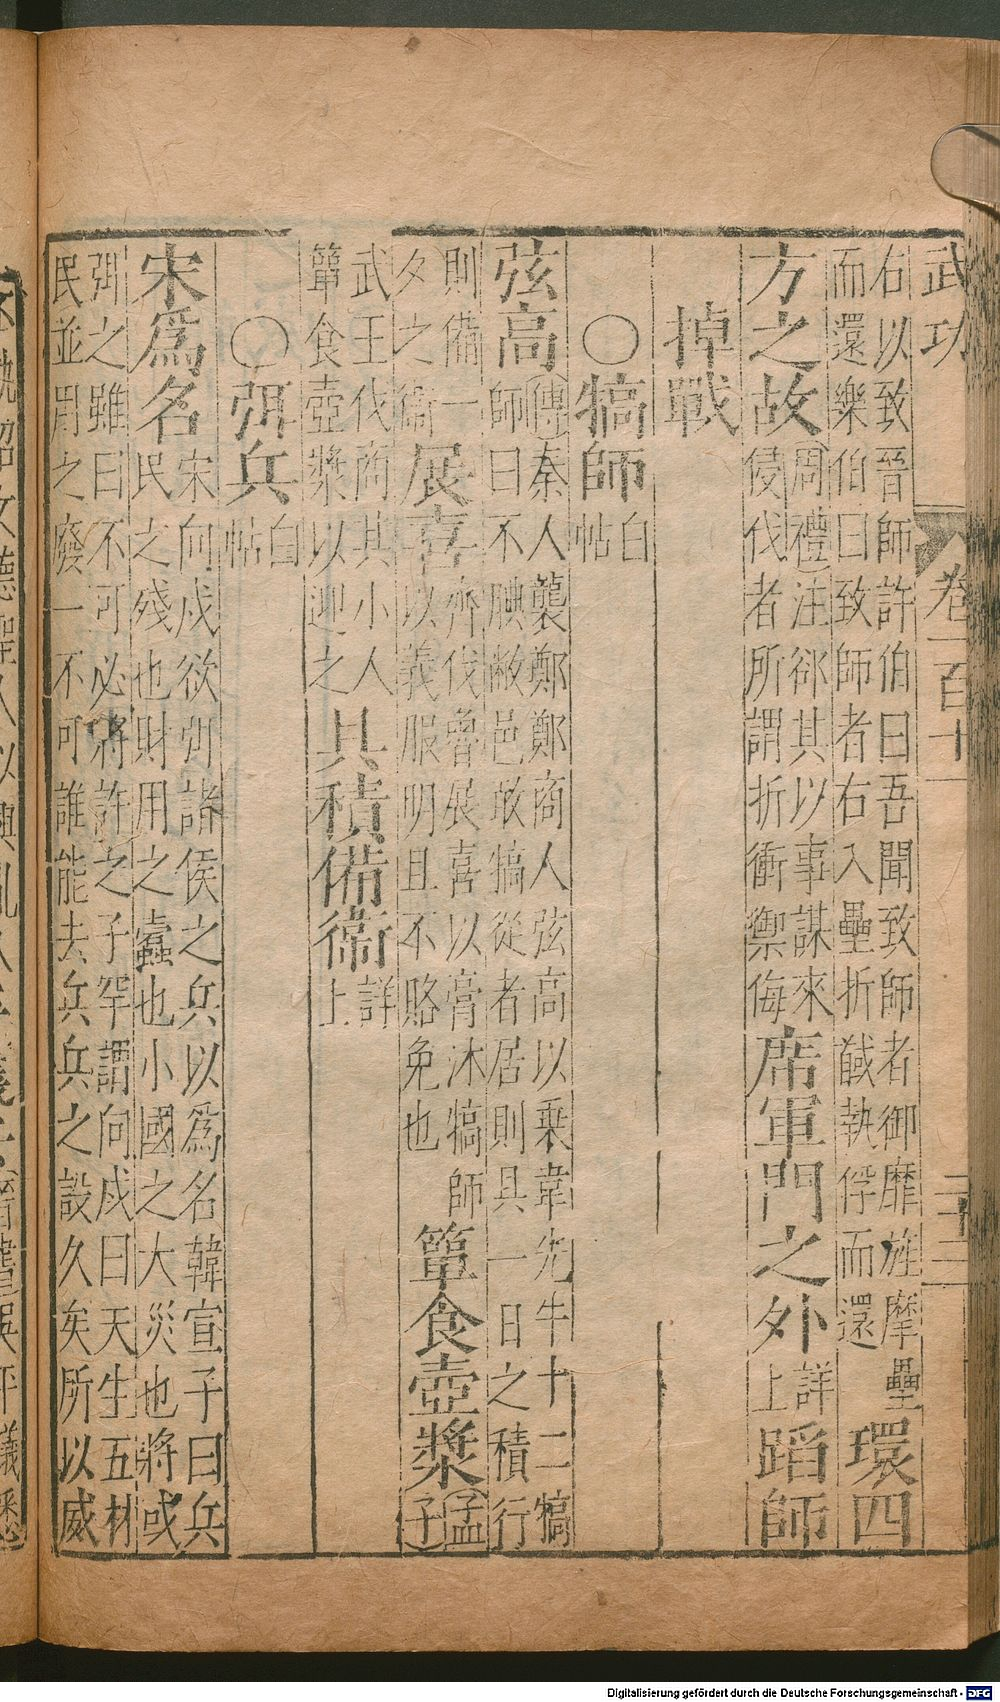 武功 卷一百十一 二十三
右以致晉師許伯曰吾聞致師者御靡旌摩壘
而還樂伯曰致師者右入壘折馘執俘而還 環四
方之故 周禮注郤其以事謀來
侵伐者所謂折衝禦侮 席軍門之外 詳上 蹈師
掉戰
○犒師 白帖
弦高 傳秦人襲鄭鄭商人弦高以乗韋先牛十二犒
師曰不腆敝邑敢犒從者居則具一日之積行
則備一
夕之衛 展喜 齊伐魯展喜以膏沐犒師
以義服明且不賂免也 簞食壺漿 孟子
武王伐商其小人
簞食壺漿以迎之 具積備衛 詳上
○弭兵 白帖
宋爲名 宋向戍欲弭諸侯之兵以爲名韓宣子曰兵
民之殘也財用之蠧也小國之大災也將或
弭之雖曰不可必將許之子罕謂向戍曰天生五材
民並用之廢一不可誰能去兵兵之設久矣所以威
Digitalisierung gefördert durch die Deutsche Forschungsgemeinschaft - DFG